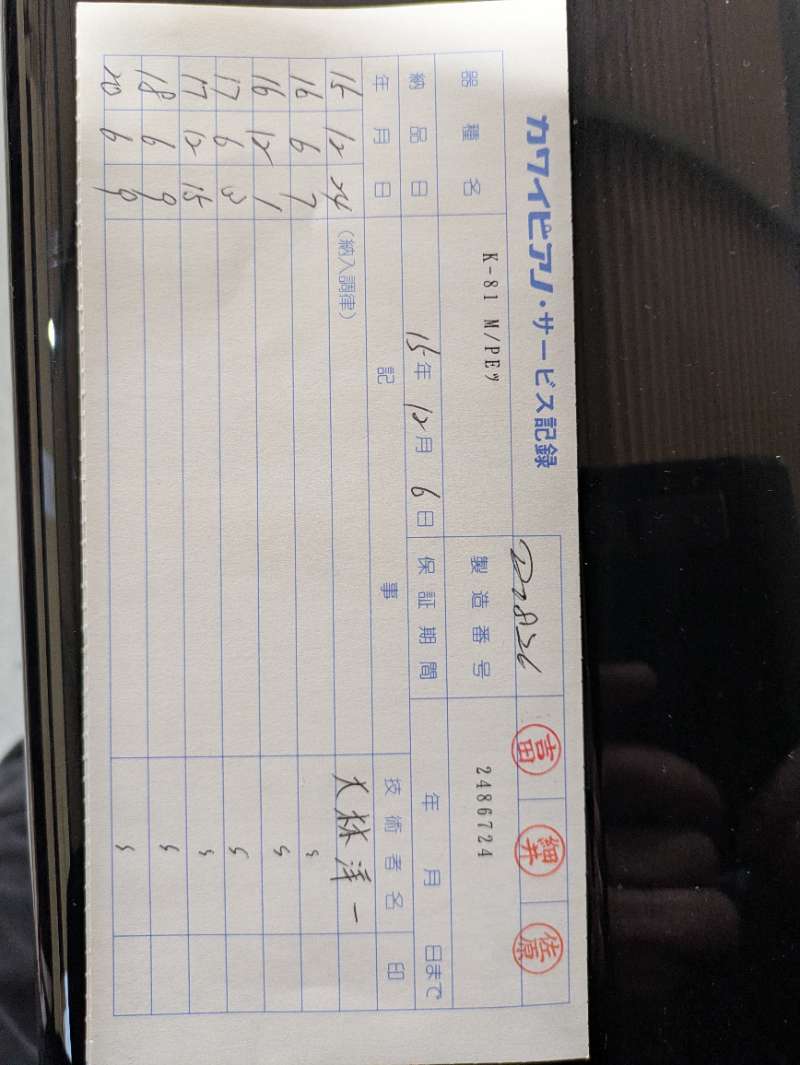 カワイピアノ・サービス記録
吉田 細井 佐原
器種名 K-81 M/PEｸ 製造番号 2486724
納品日 15年 12月 6日 保証期間 年 月 日まで
年 月 日 記 事 技術者名 印
15 12 24 (納入調律) 大林洋一
16 6 7 〃
16 12 1 〃
17 6 〃
17 12 15 〃
18 6 9 〃
20 6 9 〃